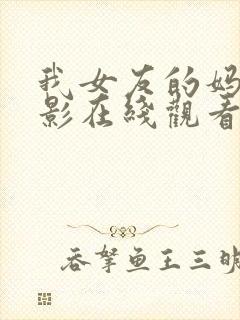 我女友的妈
影在线觀看
吞拏鱼王三明